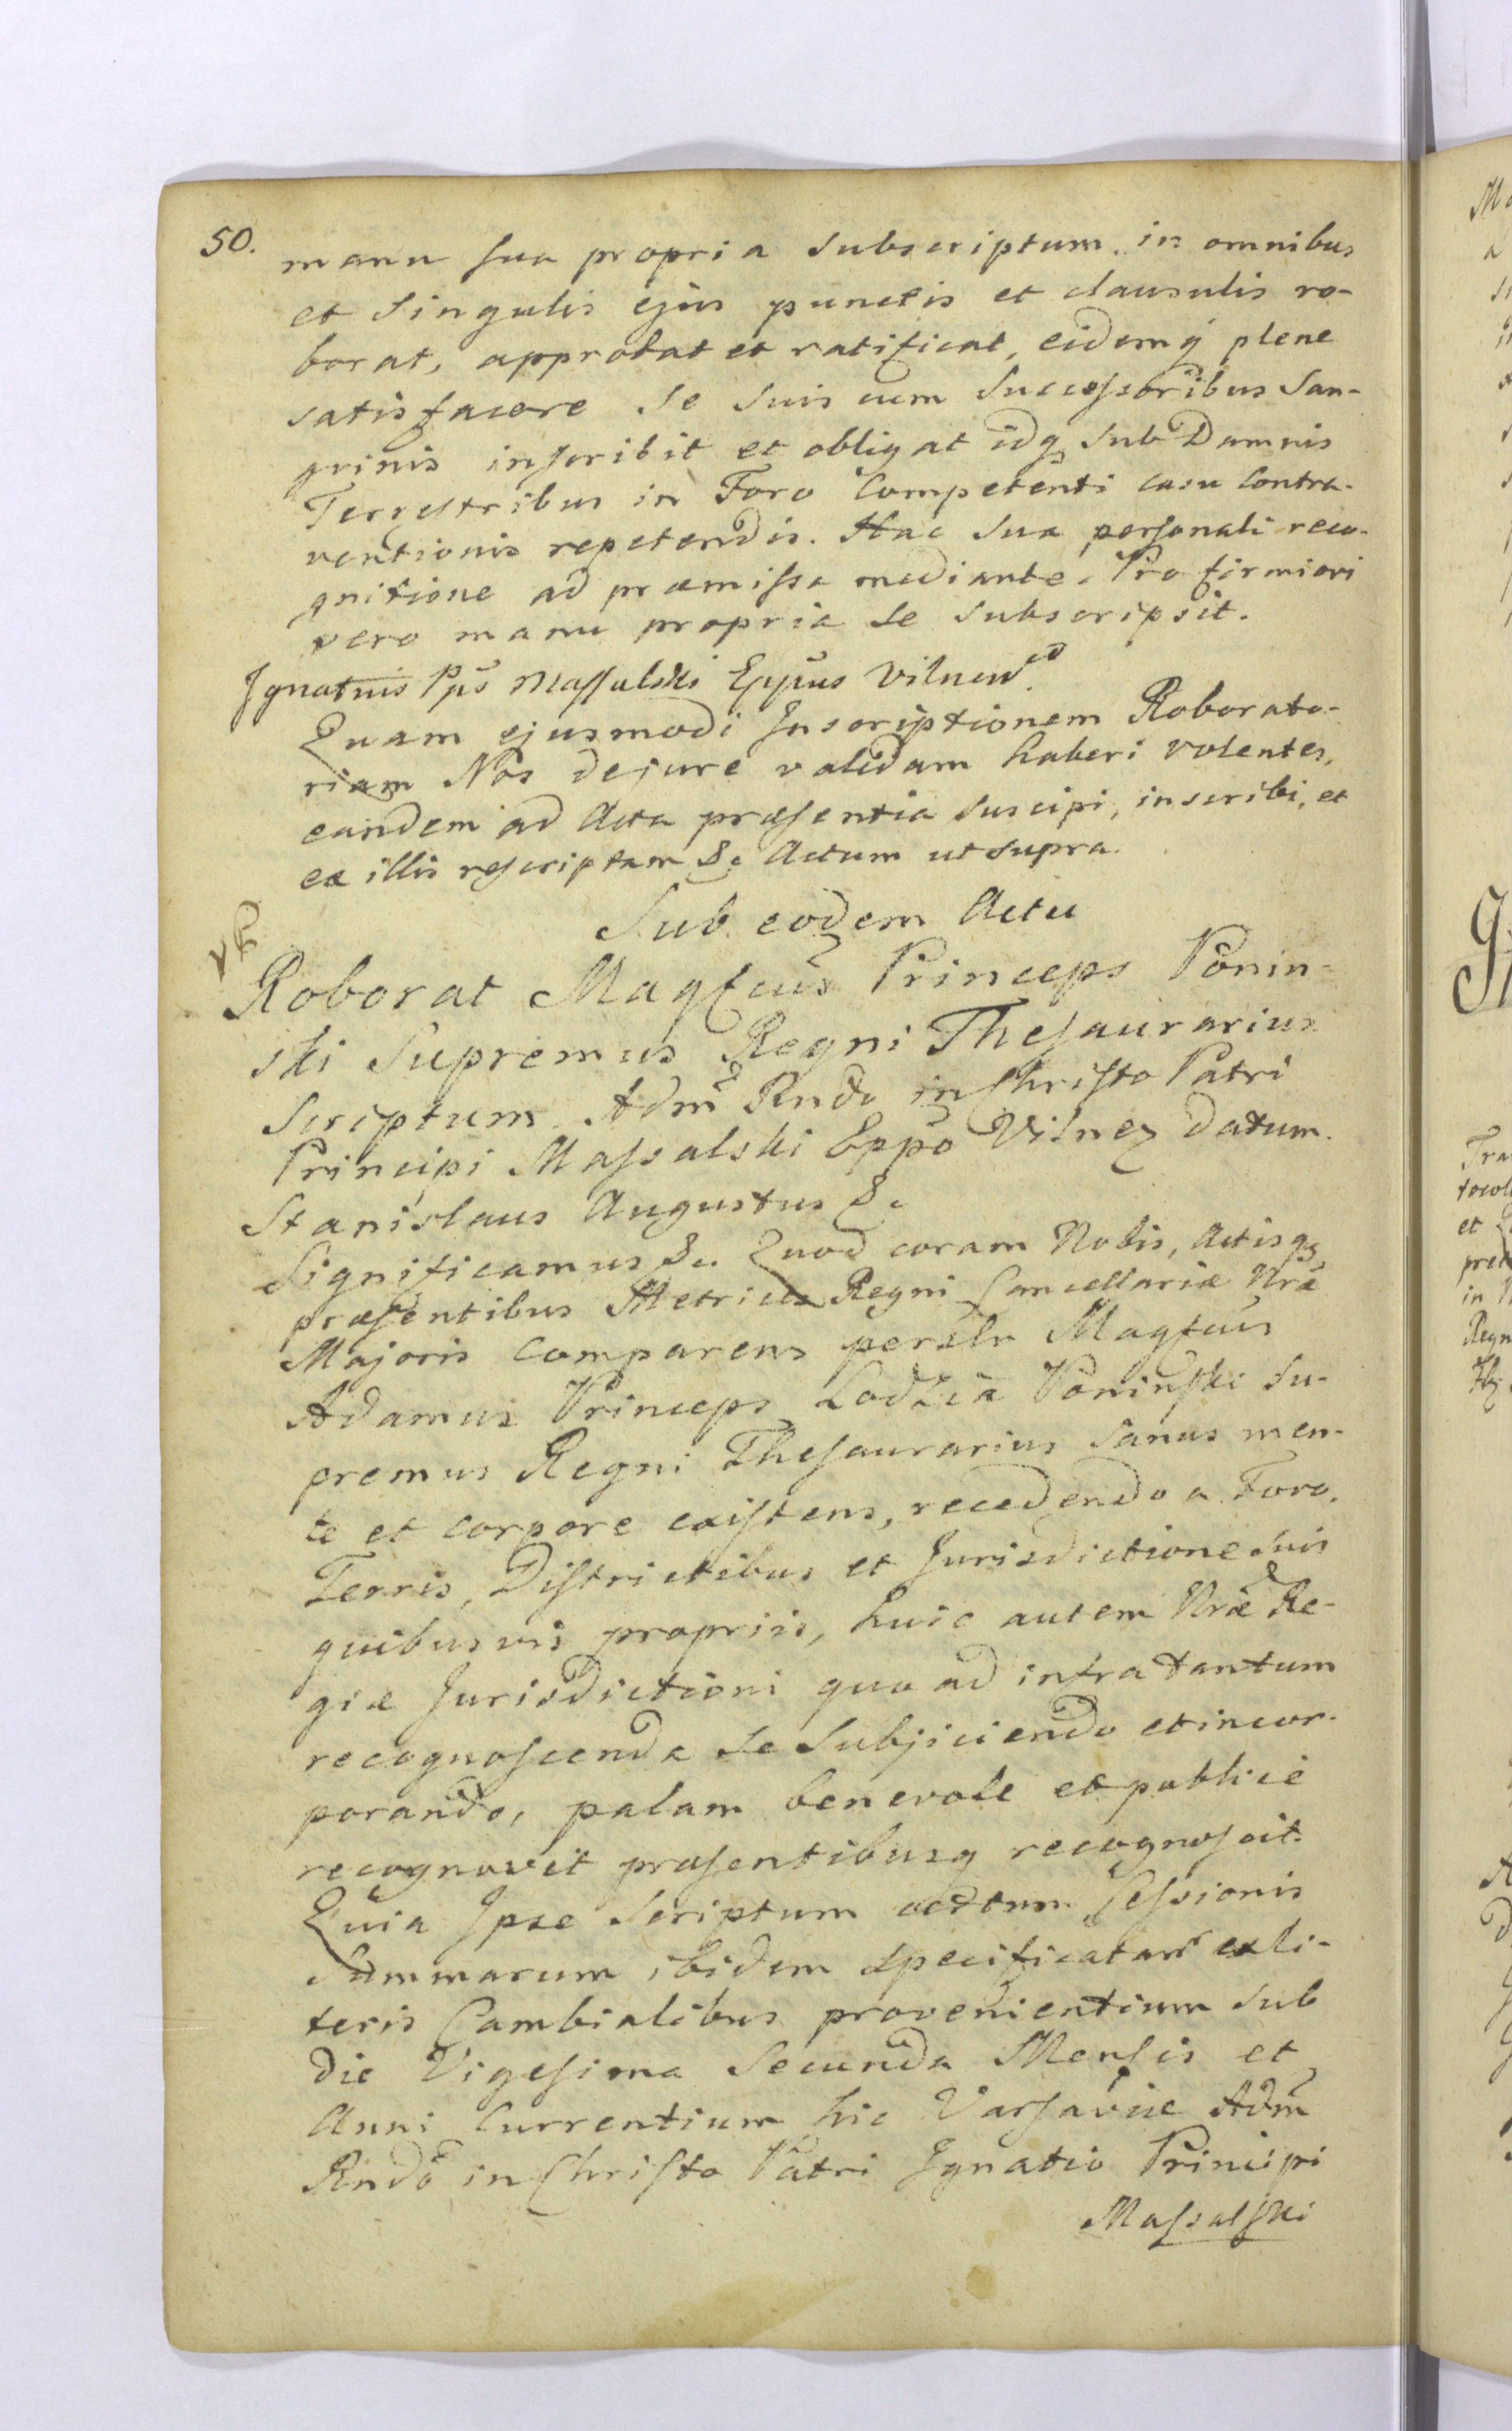 50.
manu sua propria subscriptum. in omnibus
et singulis ejus punctis et clausulis ro-
borat, approbat et ratificat, eidemq plene
satisfacere se suis cum Successoribus San-
gvinis inscribit et obligat idq sub Damnis
Terrestribus in Foro Competenti casu Contra-
ventionis repetendis. Hac sua personali reco-
gnitione ad præmissa mediante. Pro firmiori
vero manu propria se subscripsit.
Ignatius Pps Massalski Eppus Vilnen
Quam ejusmodi Inscriptionem Roborato-
riam Nos dejure validam haberi volentes,
eandem ad Acta præsentia suscipi, inscribi, et
ex illis rescriptam &c Actum ut supra.
Sub eodem Actu
Roborat Magfcus Princeps Ponin-
ski Supremus Regni Thesaurarius
Scriptum Adm Rndo in Christo Patri
Principi Massalski Eppo Vilnen datum.
Stanislaus Augustus &c
Significamus &c. Quod coram Nobis, Actisq
præsentibus Metrices Regni Cancellariæ Nræ
Majoris Comparens persلr Magfcus
Adamus Princeps Lodzia Poninski Su-
premus Regni Thesaurarius sanus men-
te et corpore existens, recedendo a Foro,
Terris, Districtibus et Jurisdictione suis
quibusvis propriis, huic autem Nræ Re-
giæ Jurisdictioni quo ad infra tantum
recognoscenda se subjiciendo et incor-
porando, palam benevole et publice
recognovit præsentibusq recognoscit.
Quia Ipse Scriptum certum Cessionis
Summarum ibidem specificatarr ex li-
teris Cambialibus provenientium sub
die Vigesima Secunda Mensis et
Anni Currentium hic Varsaviæ Adm
Rndo in Christo Patri Ignatio Principi
Massalski